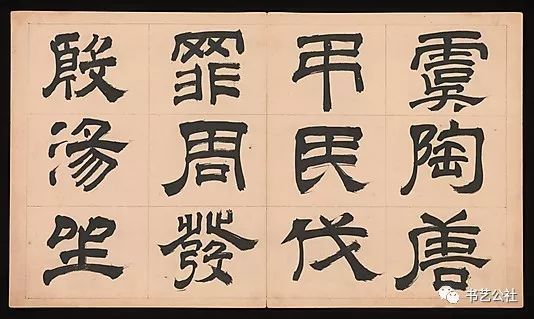 虞陶唐
弔民伐
罪周發
殷湯坐
书艺公社